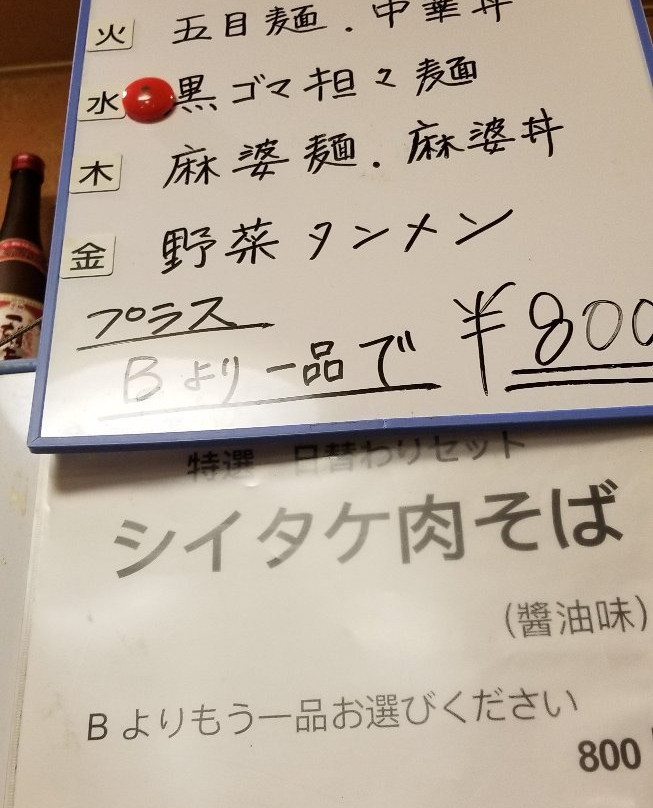 火 五目麺．中華丼
水 黒ゴマ担々麺
木 麻婆麺．麻婆丼
金 野菜タンメン
プラス
Bより一品で ¥800
特選 日替わりセット
シイタケ肉そば
(醬油味)
B よりもう一品お選びください
800